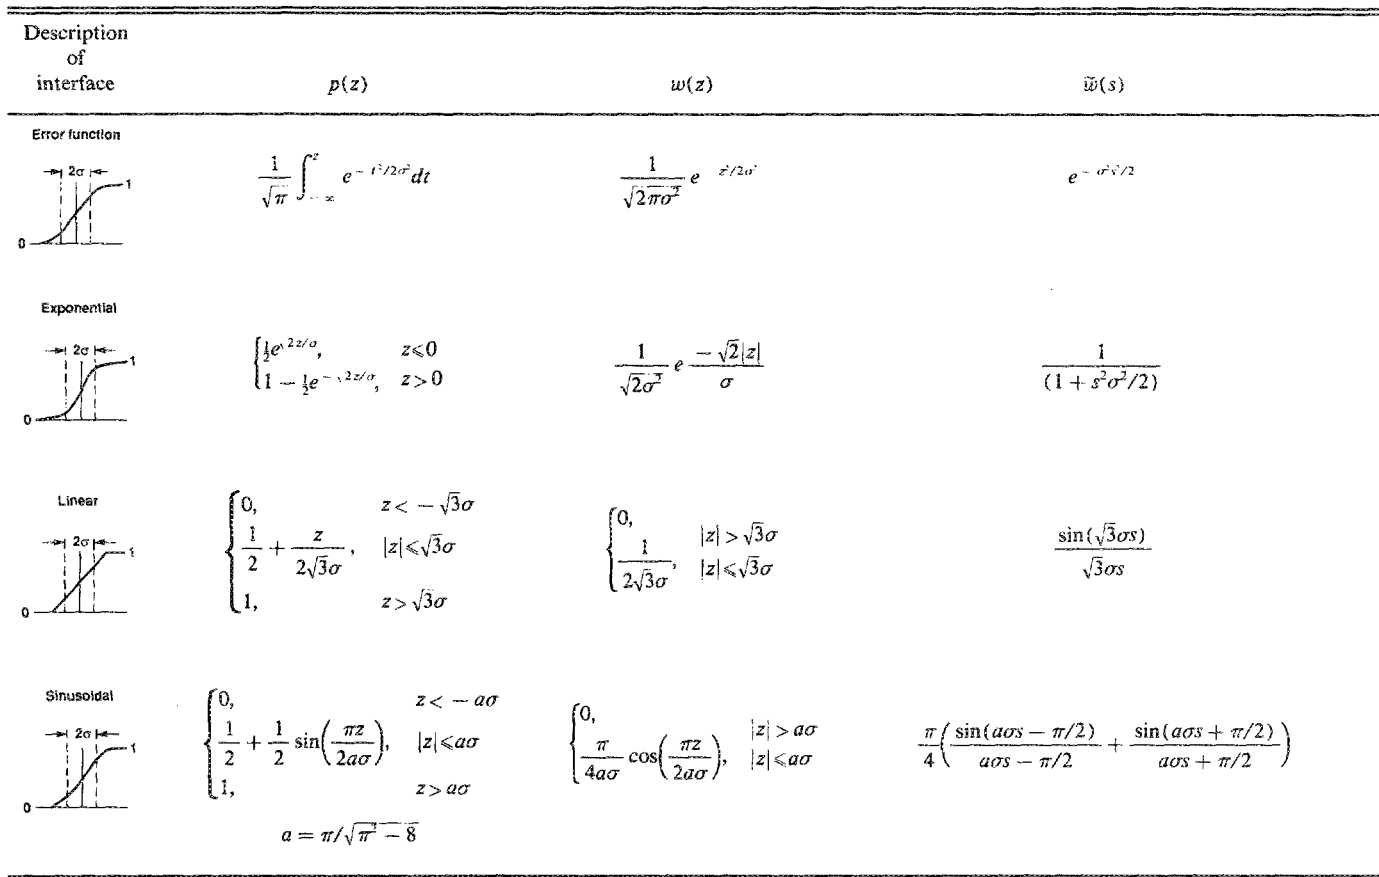 Description
of
interface p(z) w(z) w̃(s)
Error function
2σ
1
0
\frac{1}{\sqrt{\pi}} \int_{-\infty}^{z} e^{-t²/2σ²} dt
\frac{1}{\sqrt{2πσ²}} e^{z²/2σ²}
e^{-σ²s²/2}
Exponential
2σ
1
0
\frac{1}{2}e^{\sqrt{2}z/σ}, z⩽0
1 - \frac{1}{2}e^{-\sqrt{2}z/σ}, z>0
\frac{1}{\sqrt{2σ²}} e \frac{-\sqrt{2}|z|}{σ}
\frac{1}{(1 + s²σ²/2)}
Linear
2σ
1
0
0, z < -√3σ
\frac{1}{2} + \frac{z}{2√3σ}, |z|⩽√3σ
1, z > √3σ
0, |z| > √3σ
\frac{1}{2√3σ}, |z|⩽√3σ
\frac{sin(√3σs)}{√3σs}
Sinusoidal
2σ
1
0
0, z < -aσ
\frac{1}{2} + \frac{1}{2} sin(\frac{πz}{2aσ}), |z|⩽aσ
1, z > aσ
a = π/\sqrt{π² - 8}
0, |z| > aσ
\frac{π}{4aσ} cos(\frac{πz}{2aσ}), |z|⩽aσ
\frac{π}{4}(\frac{sin(aσs - π/2)}{aσs - π/2} + \frac{sin(aσs + π/2)}{aσs + π/2})